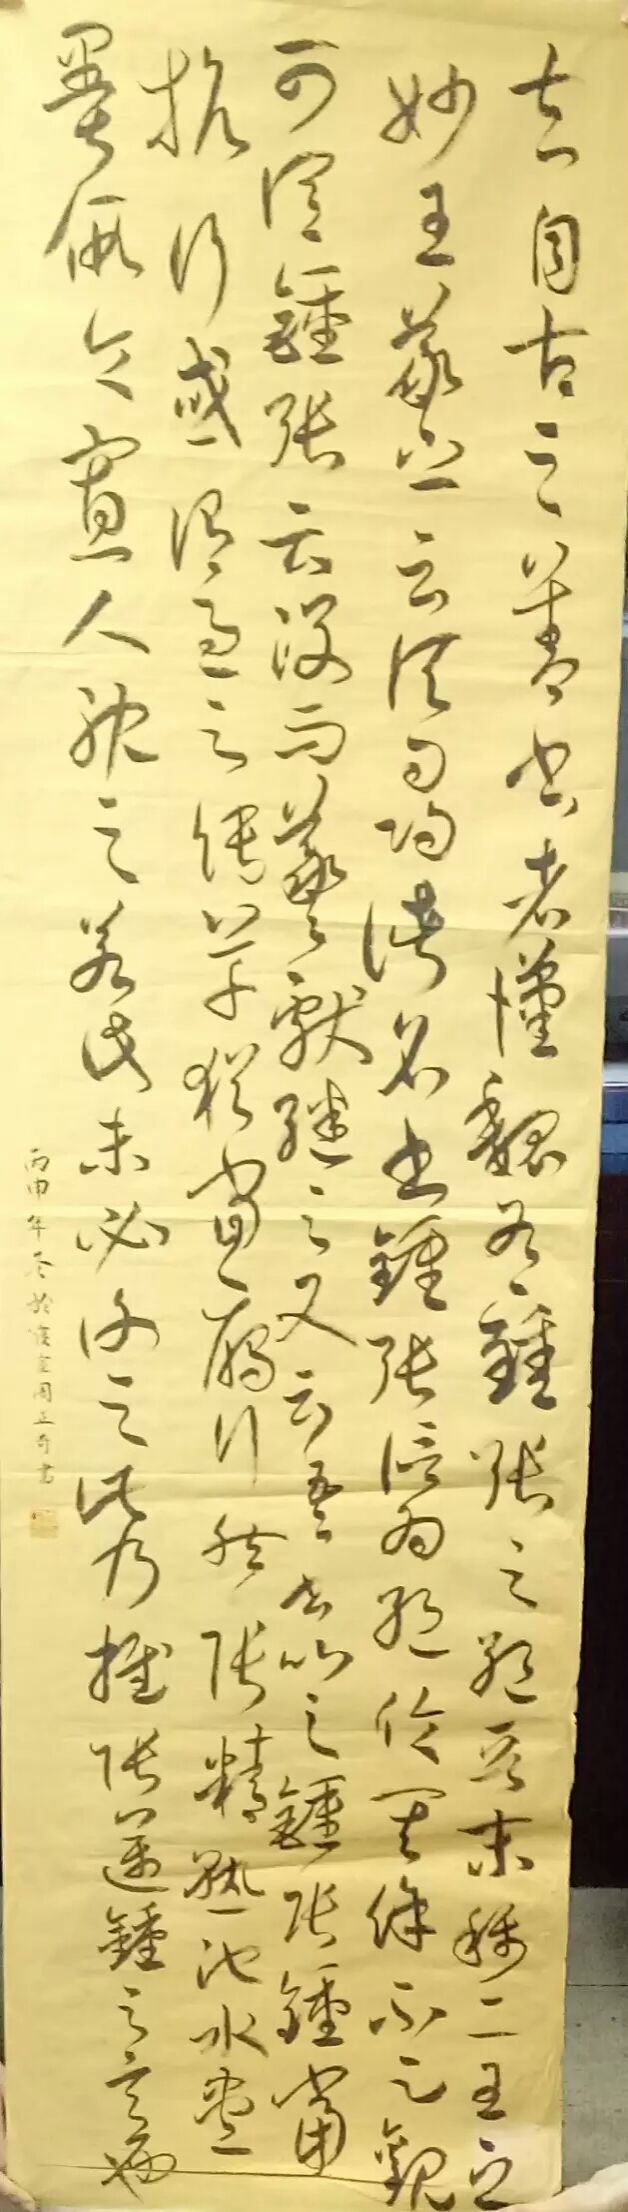 夫自古之善書者漢魏有鍾張之絕晉末稱二王之
妙王羲之云頃尋諸名書鍾張信為絕倫其餘不足觀
可謂鍾張云沒而羲獻繼之又云吾書比之鍾張鍾當
抗行或謂過之張草猶當雁行然張精熟池水盡
墨假令寡人耽之若此未必謝之此乃推張邁鍾之意也
丙申年冬於周正奇書